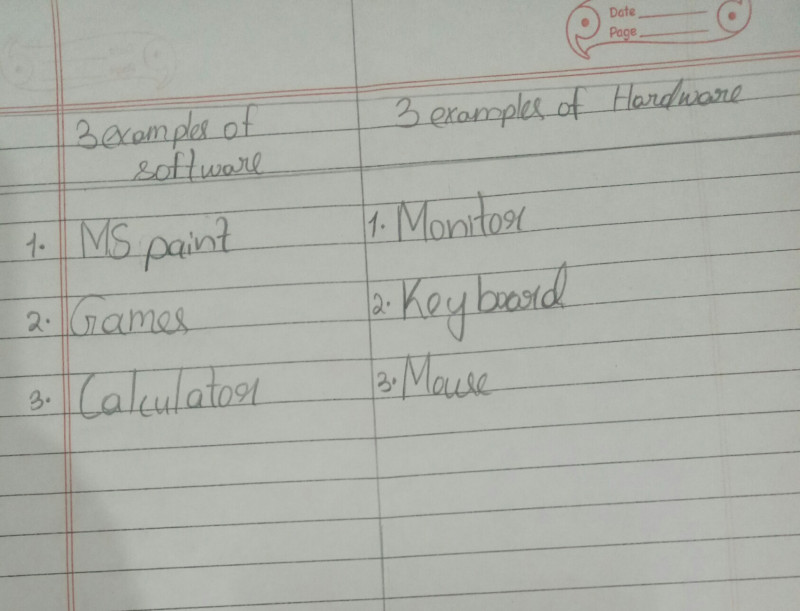 Date
Page
3 examples of
software
3 examples of Hardware
1. MS paint
2. Games
3. Calculator
1. Monitor
2. Keyboard
3. Mouse